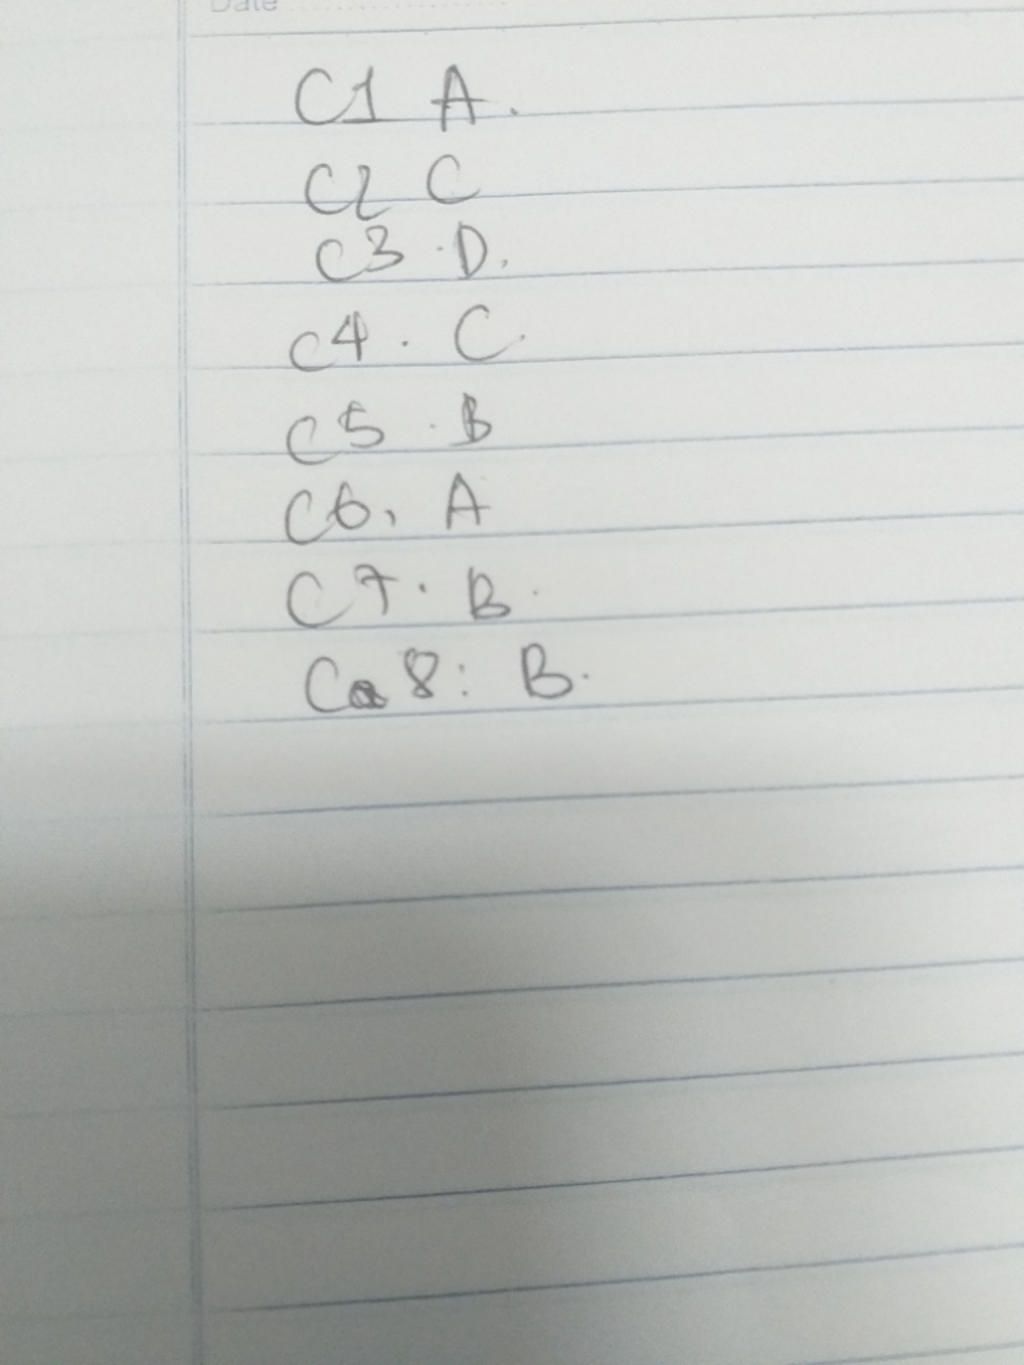 Date
C1 A.
C2 C
C3 . D.
C4 . C.
C5 . B
C6, A
C7 . B.
Ca 8: B.